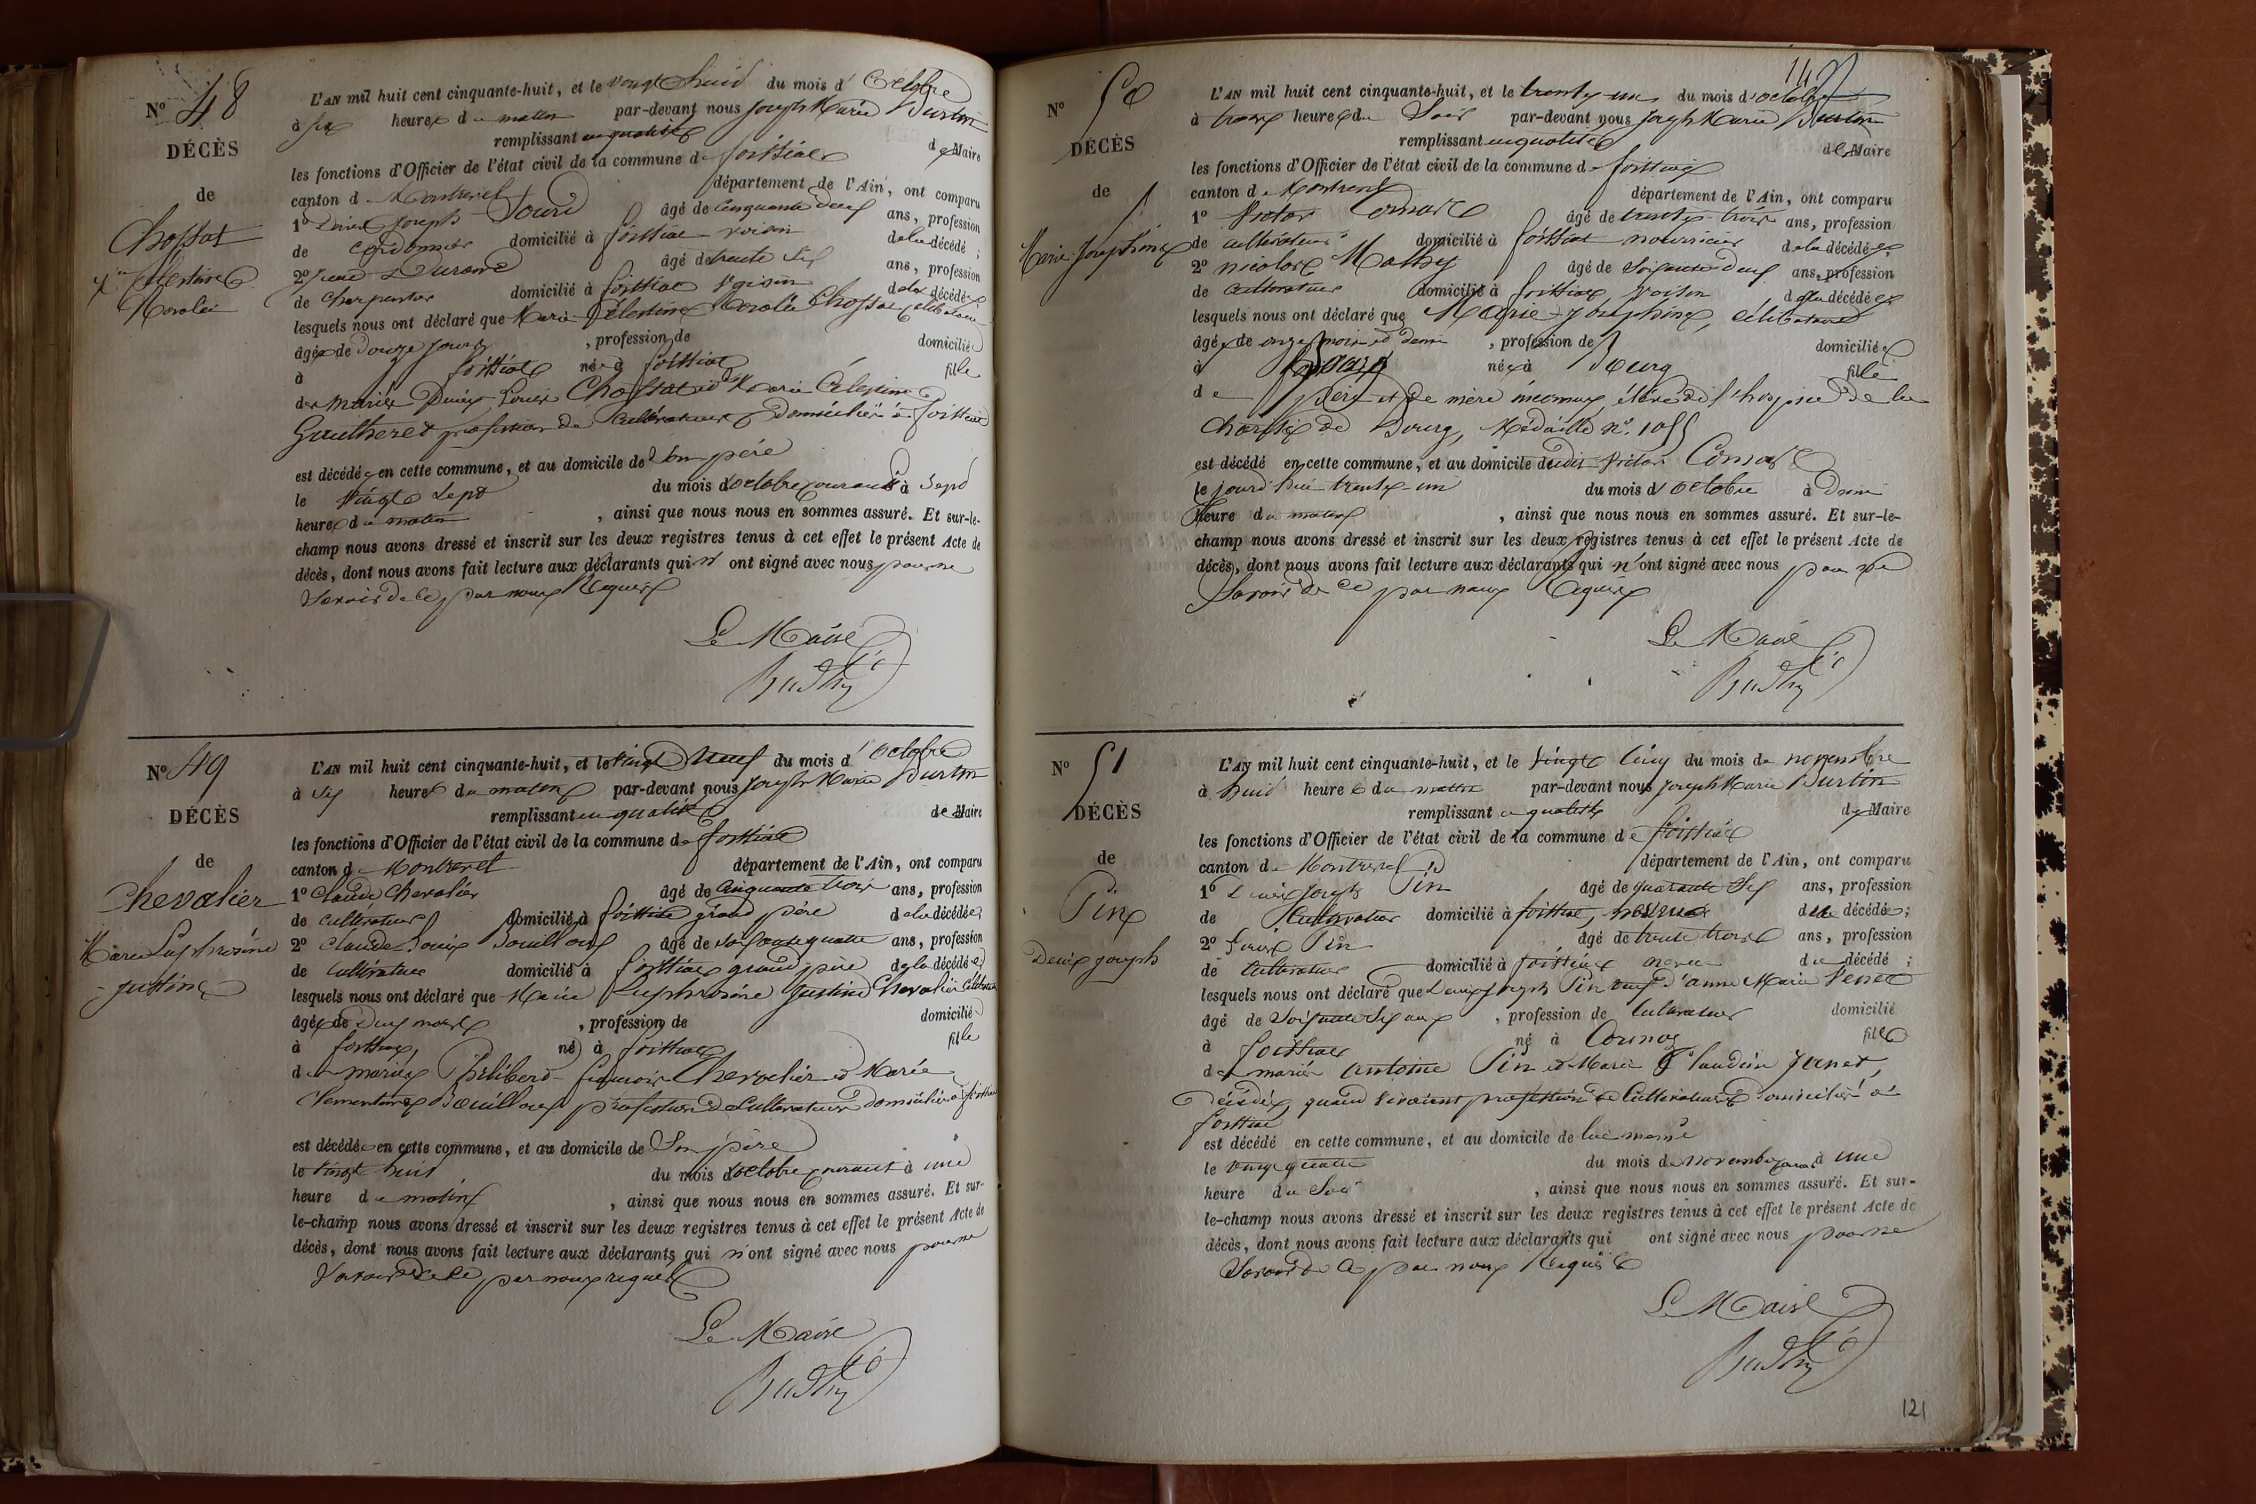 N° 48
DÉCÈS
de
Chossat
Célestine
L'AN mil huit cent cinquante-huit, et le vingt huit du mois d'Octobre
à six heures du matin par-devant nous Joseph Marie Burtin
remplissant en qualité de Maire
les fonctions d'Officier de l'état civil de la commune de foissiat
canton de Montrevel département de l'Ain, ont comparu
1° Denis Joseph âgé de cinquante deux ans, profession
de cordonnier domicilié à foissiat voisin de la décédé ;
2° Durand âgé de trente six ans, profession
de charpentier domicilié à foissiat voisin de la décédée
lesquels nous ont déclaré que Marie Célestine Chossat célibataire
âgée de douze jours, profession de domicilié
à foissiat née à foissiat fille
des mariés Denis Louis Chossat et de Marie Célestine
profession de cultivateurs domiciliés à foissiat
est décédée en cette commune, et au domicile de son père
le vingt sept du mois d'octobre courant à sept
heures du matin, ainsi que nous nous en sommes assuré. Et sur-le-
champ nous avons dressé et inscrit sur les deux registres tenus à cet effet le présent Acte de
décès, dont nous avons fait lecture aux déclarants qui n'ont signé avec nous pour ne
savoir de ce par nous requis
Le Maire
N° 49
DÉCÈS
de
Chevalier
Marie Euphrosine
Justine
L'AN mil huit cent cinquante-huit, et le vingt neuf du mois d'octobre
à six heures du matin par-devant nous Joseph Marie Burtin
remplissant en qualité de Maire
les fonctions d'Officier de l'état civil de la commune de foissiat
canton de Montrevel département de l'Ain, ont comparu
1° Claude Chevalier âgé de cinquante trois ans, profession
de cultivateur domicilié à foissiat grand père de la décédée;
2° Claude Louis Bouilloux âgé de soixante quatre ans, profession
de cultivateur domicilié à foissiat grand père de la décédée;
lesquels nous ont déclaré que Marie Euphrosine Justine Chevalier célibataire
âgée de deux mois, profession de domicilié
à foissiat, né à foissiat fille
de mariés Philibert françois Chevalier et Marie
Clementine Bouilloux profession de cultivateurs domiciliés à foissiat
est décédée en cette commune, et au domicile de son père
le vingt huit du mois d'octobre courant à une
heure du matin, ainsi que nous nous en sommes assuré. Et sur-
le-champ nous avons dressé et inscrit sur les deux registres tenus à cet effet le présent Acte de
décès, dont nous avons fait lecture aux déclarants qui n'ont signé avec nous pour ne
savoir de ce par nous requis
Le Maire
N° 50
DÉCÈS
de
Marie Joséphine
L'AN mil huit cent cinquante-huit, et le trente un du mois d'octobre
à heures du soir par-devant nous Joseph Marie Burtin
remplissant en qualité de Maire
les fonctions d'Officier de l'état civil de la commune de foissiat
canton de Montrevel département de l'Ain, ont comparu
1° Victor âgé de trente trois ans, profession
de cultivateur domicilié à foissiat nourricier de la décédée;
2° Nicolas Mathy âgé de soixante deux ans, profession
de cultivateur domicilié à foissiat voisin de la décédée
lesquels nous ont déclaré que Marie Joséphine, célibataire
âgée de onze mois et demi, profession de domiciliée
à Bourg née à Bourg fille
de père et de mère inconnus, élève de l'hospice de la
charité de Bourg, Médaille n° 1055
est décédé en cette commune, et au domicile dudit Victor
le jourd'hui trente un du mois d'octobre à
heure du matin, ainsi que nous nous en sommes assuré. Et sur-le-
champ nous avons dressé et inscrit sur les deux registres tenus à cet effet le présent Acte de
décès, dont nous avons fait lecture aux déclarants qui n'ont signé avec nous pour ne
savoir de ce par nous requis
Le Maire
N° 51
DÉCÈS
de
Pin
Denis Joseph
L'AN mil huit cent cinquante-huit, et le vingt cinq du mois de novembre
à huit heures du matin par-devant nous Joseph Marie Burtin
remplissant en qualité de Maire
les fonctions d'Officier de l'état civil de la commune de foissiat
canton de Montrevel département de l'Ain, ont comparu
1° Denis Joseph Pin âgé de quarante six ans, profession
de cultivateur domicilié à foissiat, neveu du décédé;
2° Louis Pin âgé de trente trois ans, profession
de cultivateur domicilié à foissiat neveu du décédé ;
lesquels nous ont déclaré que Denis Joseph Pin veuf d'anne Marie
âgé de soixante six ans, profession de cultivateur domicilié
à foissiat né à fils
des mariés antoine Pin et Marie Claudine
décédés, quand vivaient profession de cultivateurs domiciliés à
foissiat
est décédé en cette commune, et au domicile de lui même
le vingt quatre du mois de novembre à une
heure du soir, ainsi que nous nous en sommes assuré. Et sur-
le-champ nous avons dressé et inscrit sur les deux registres tenus à cet effet le présent Acte de
décès, dont nous avons fait lecture aux déclarants qui ont signé avec nous pour ne
savoir de ce par nous requis
Le Maire
121